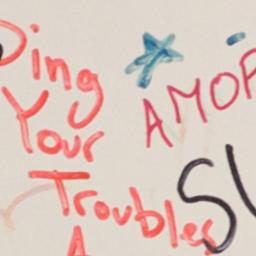 Ding
Your
Troubles
A
AMOR